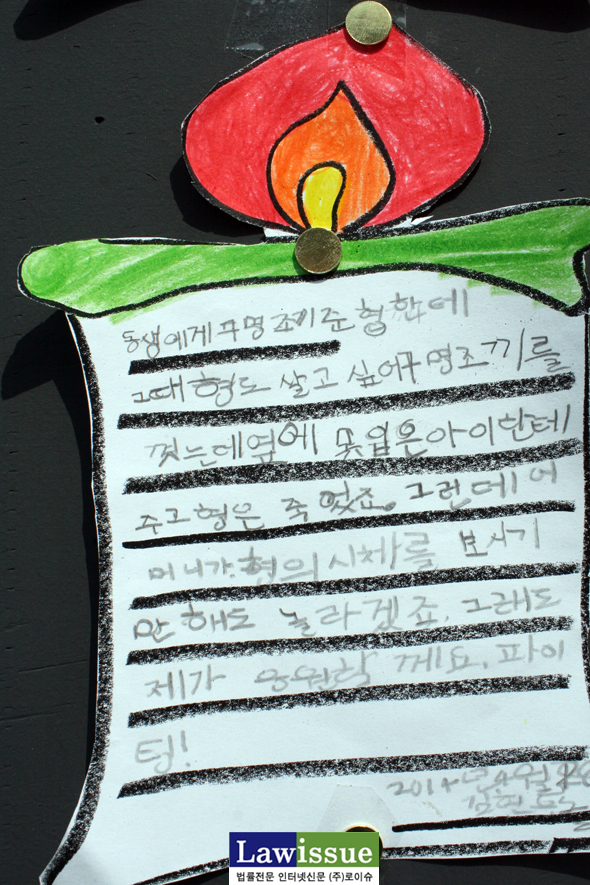 동생에게 구명조끼준 형한테
그때 형도 살고 싶어구명조끼를
껏는데옆에 못입은아이한테
주고형은 죽엇죠. 그런데 어
머니가.형의시체를 보시기
만 해도 놀라겠죠. 그래도
제가 응원할 께요. 파이
팅!
2014년4월
Lawissue
법률전문 인터넷신문 (주)로이슈